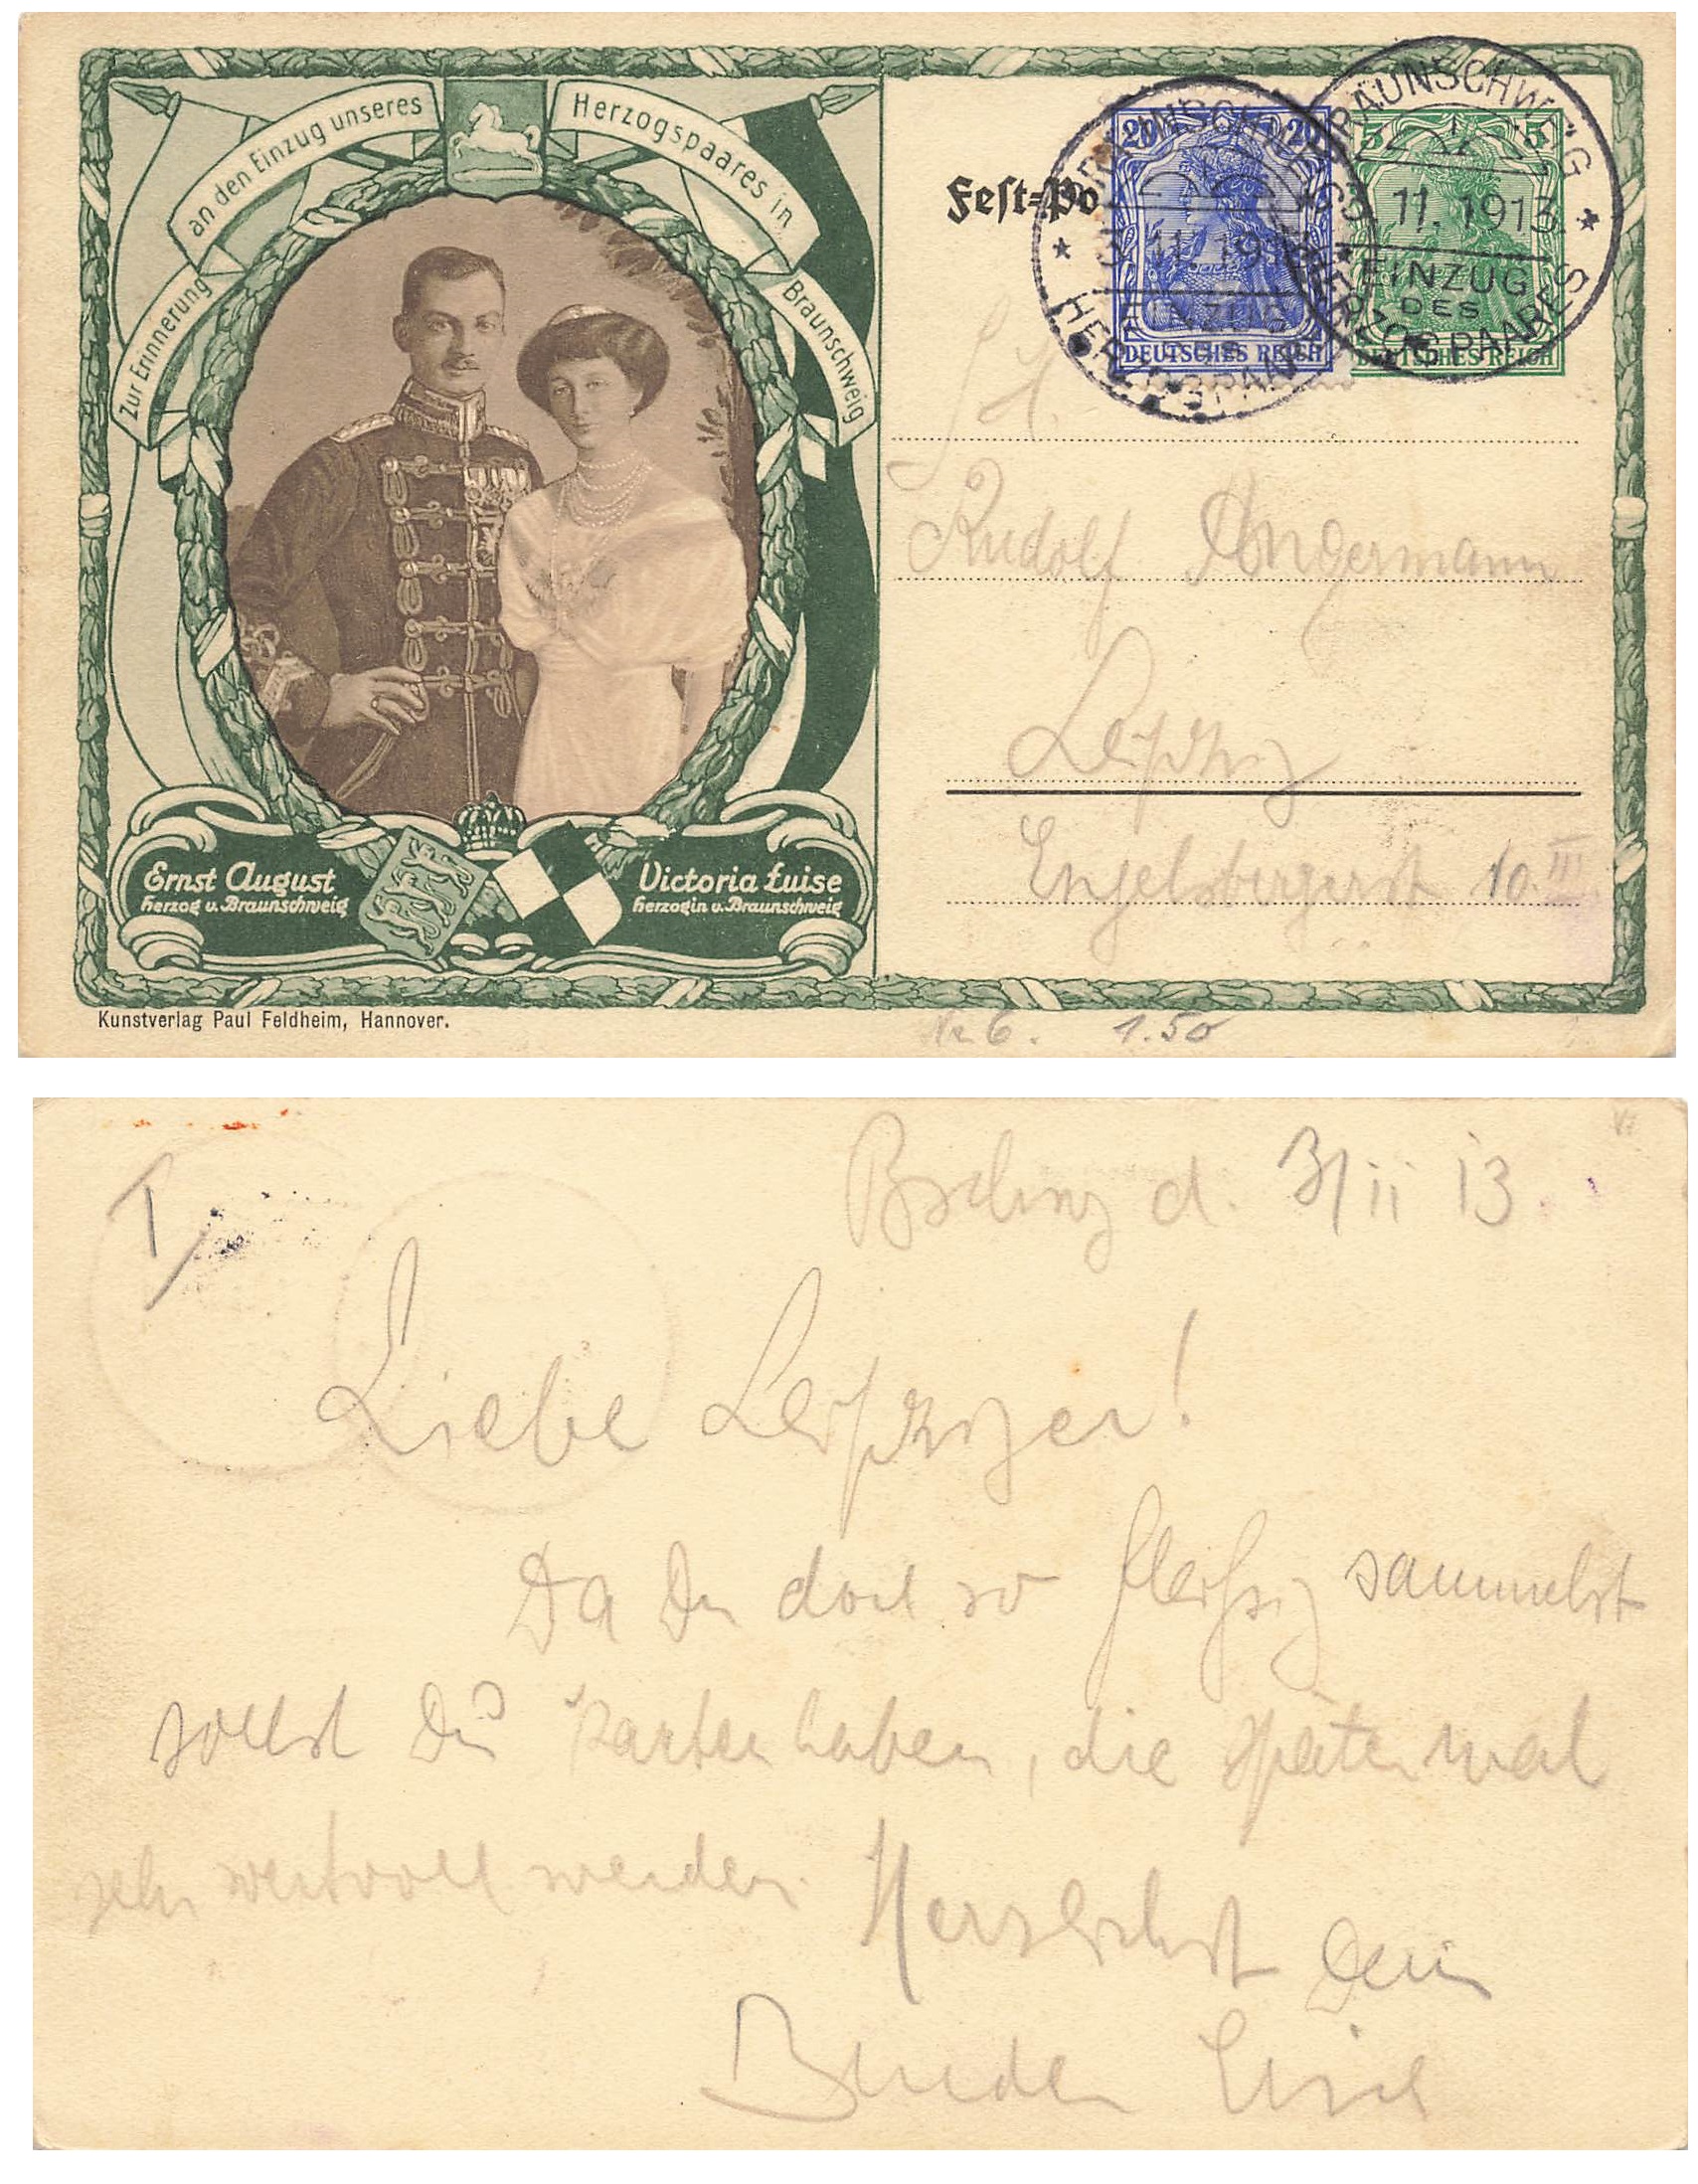 Zur Erinnerung an den Einzug unseres Herzogspaares in Braunschweig
Ernst August
Herzog v. Braunschweig
Victoria Luise
Herzogin v. Braunschweig
Kunstverlag Paul Feldheim, Hannover.
Fest=Po
20 20
DEUTSCHES REICH
5 5
DEUTSCHES REICH
BRAUNSCHWEIG
3. 11. 19
EINZUG
HERZOGSPAARES
BRAUNSCHWEIG
11. 1913.
EINZUG
DES
HERZOGSPAARES
Rudolf Angermann
Leipzig
Engelsbergerst 10. III
Nr. 6. 1.50
T
d. 3/11 13.
Liebe Leipziger!
Da Du doch so fleissig sammelst
sollst Du Karten haben, die später mal
sehr wertvoll werden. Herzlichst Dein
Bruder